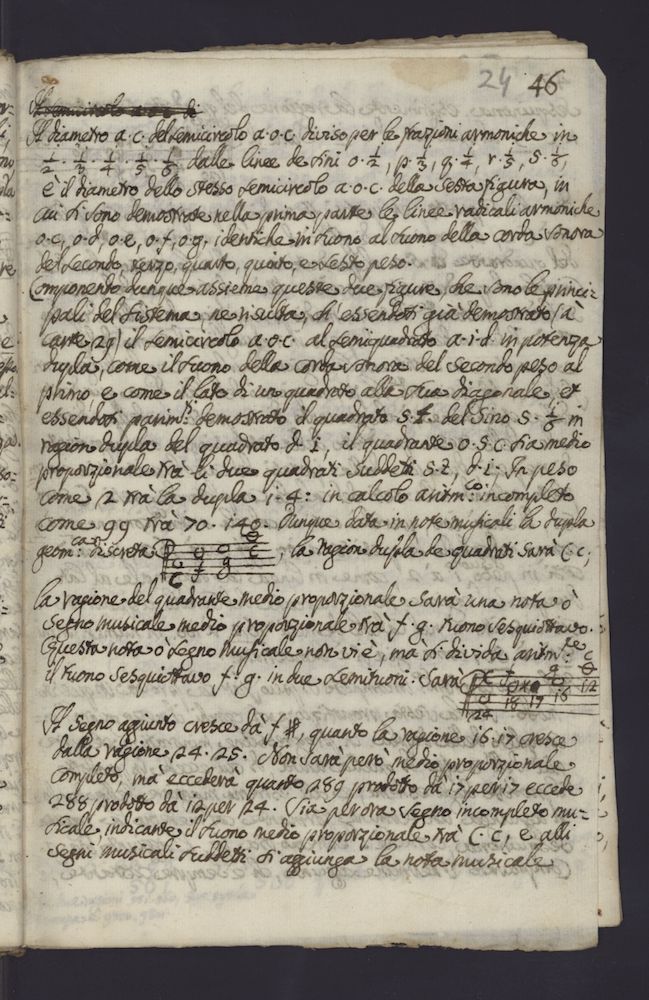 24 46
Il semicircolo a·o·c di
Il diametro a·c· del semicircolo a·o·c diviso per le frazioni armoniche in
1/2 · 1/3 · 1/4 · 1/5 · 1/6 dalle linee de sini o·1/2, p·1/3, q·1/4, r·1/5, s·1/6,
è il diametro dello stesso semicircolo a·o·c della sesta figura, in
cui si sono demostrate nella prima parte le linee radicali armoniche
o·c, o·d, o·e, o·f, o·g, identiche in suono al suono della corda sonora
del secondo, terzo, quarto, quinto, e sesto peso.
Componendo dunque assieme queste due figure, che sono le princi=
pali del sistema, ne risulta, ch'essendosi già demostrato (à
carte 29) il semicircolo a·o·c al semiquadrato a·i·d in potenza
dupla, come il suono della corda sonora del secondo peso al
primo e come il lato di un quadrato alla sua diagonale, et
essendosi parim.te demostrato il quadrato s·z· del sino s·1/6 in
ragion dupla del quadrato d·i, il quadrante o·s·c· sia medio
proporzionale trà li due quadrati suddetti s·z, d·i; In peso
come 2 trà la dupla 1·4: in calcolo aritm.co incompleto
come 99 trà 70·140. Dunque data in note musicali la dupla
geom.ca discreta C f g c, la ragion dupla de quadrati sarà C·c;
la ragione del quadrante medio proporzionale sarà una nota ò
segno musicale medio proporzionale trà f·g· tuono sesquiottavo.
Questa nota ò segno musicale non vi è, mà si divida aritm.te
il tuono sesquiottavo f·g· in due semituoni. Sarà C f f# g c
24 18 17 16 12
Il segno aggiunto cresce dà f #, quanto la ragione 16·17 cresce
dalla ragione 24·25. Non sarà però medio proporzionale
completo, mà eccederà quanto 289 prodotto dà 17 per 17 eccede
288 prodotto dà 12 per 24. Sia per ora segno incompleto mu=
sicale indicante il suono medio proporzionale trà C·c, e alli
segni musicali suddetti si aggiunga la nota musicale